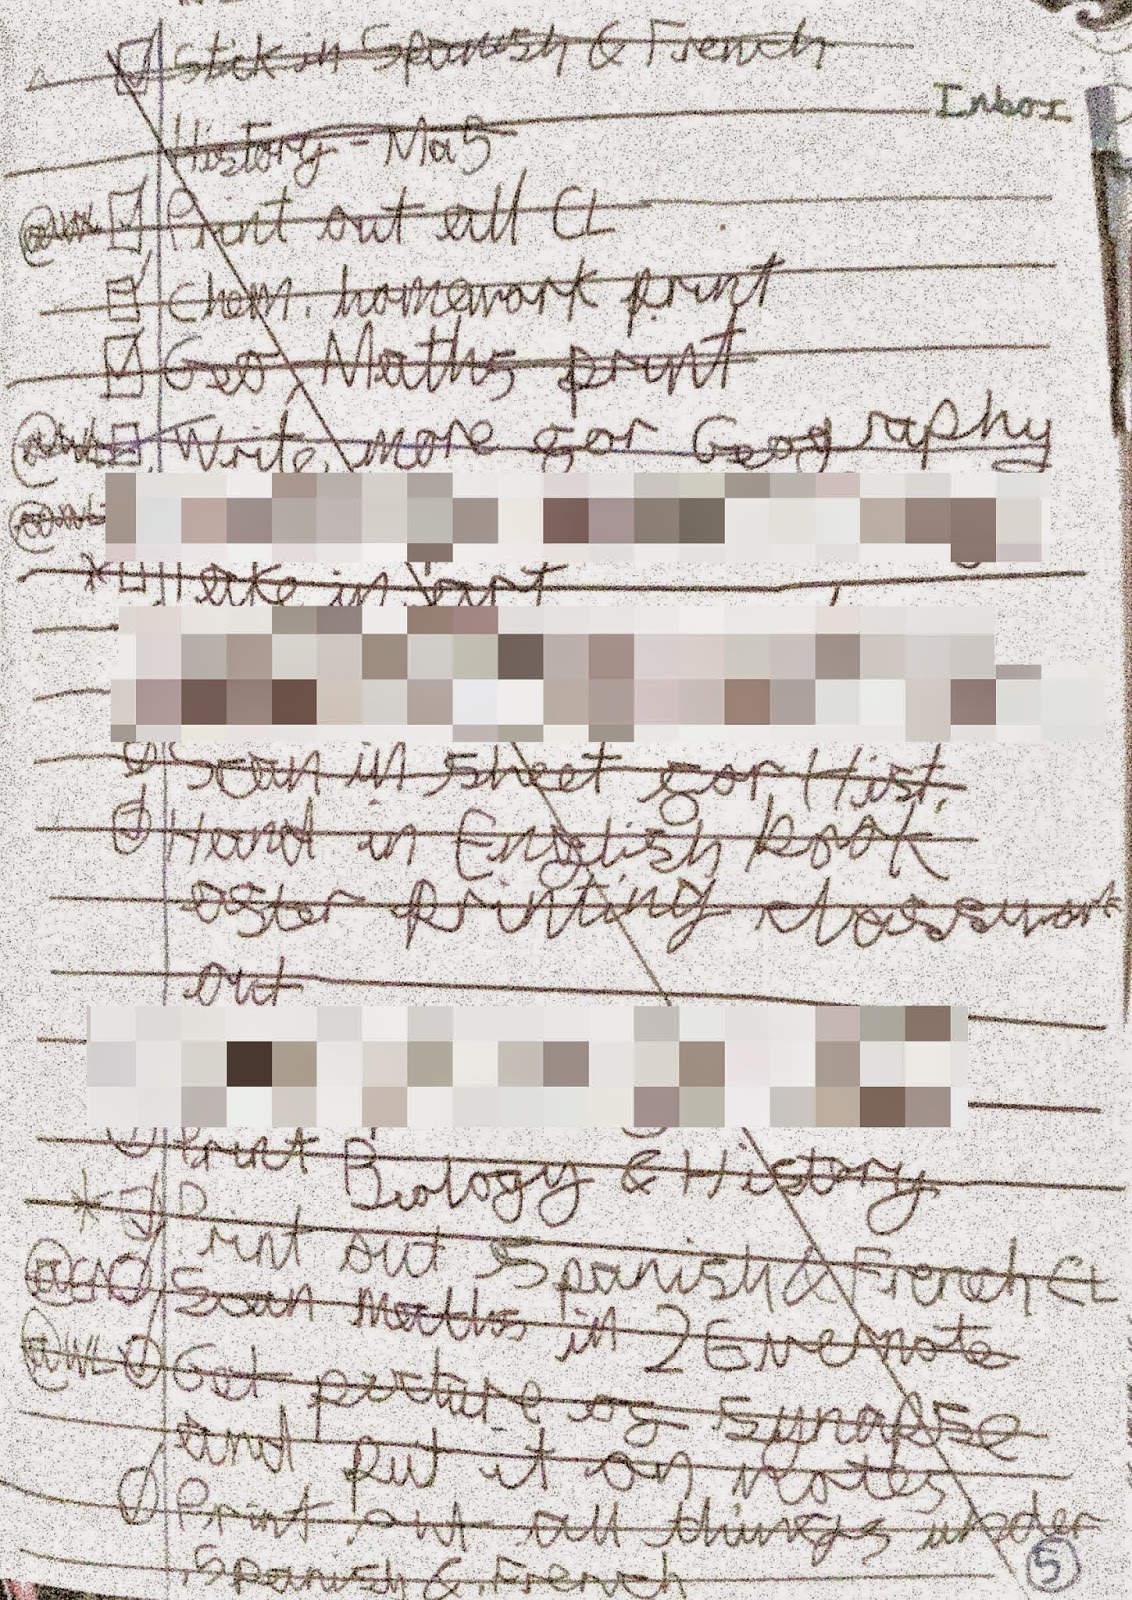 Stick in Spanish & French
Inbox
History - Ma5
Print out all CL
Chem. homework print
Geo Maths print
@WL Write more for Geography
Take in art
Scan in sheet for Hist.
Hand in English book
after printing classwork
out
Print Biology & History
Print out Spanish & French CL
Scan Maths in 2 Evernote
@WL Get picture of synapse
and put it on notes
Print out all things under
Spanish & French
5